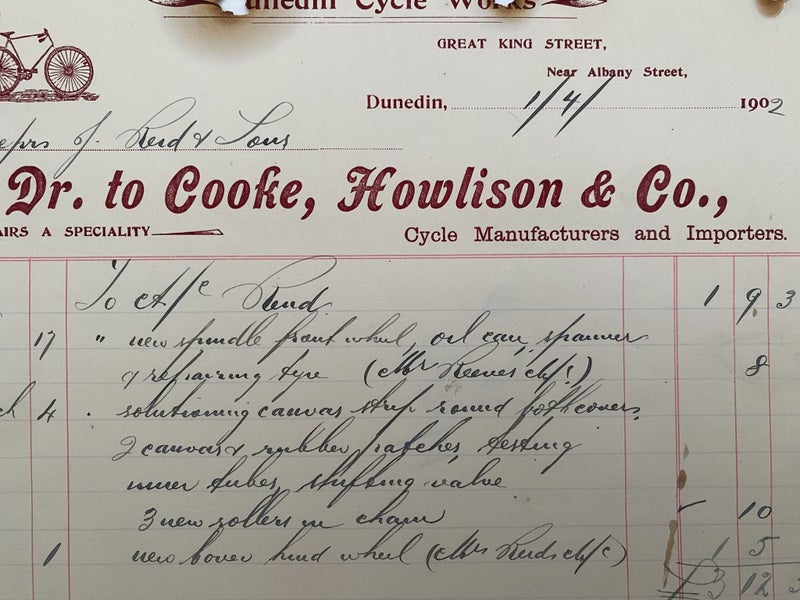 Dunedin Cycle Works
GREAT KING STREET,
Near Albany Street,
Dunedin, 1/4/ 1902
of Reid & Sons
Dr. to Cooke, Howlison & Co.,
AIRS A SPECIALITY
Cycle Manufacturers and Importers.
To A/c Rend 1 9 3
17 " new spindle front wheel, oil can, spanner
& repairing tyre (Mr Reeves A/c) 8
ch 4 . solutioning canvas strip round both covers,
2 canvas & rubber patches, testing
inner tubes, shifting valve
3 new rollers in chain 10
1 new cover hind wheel (Mr Reids A/c) 1 5
£3 12 3